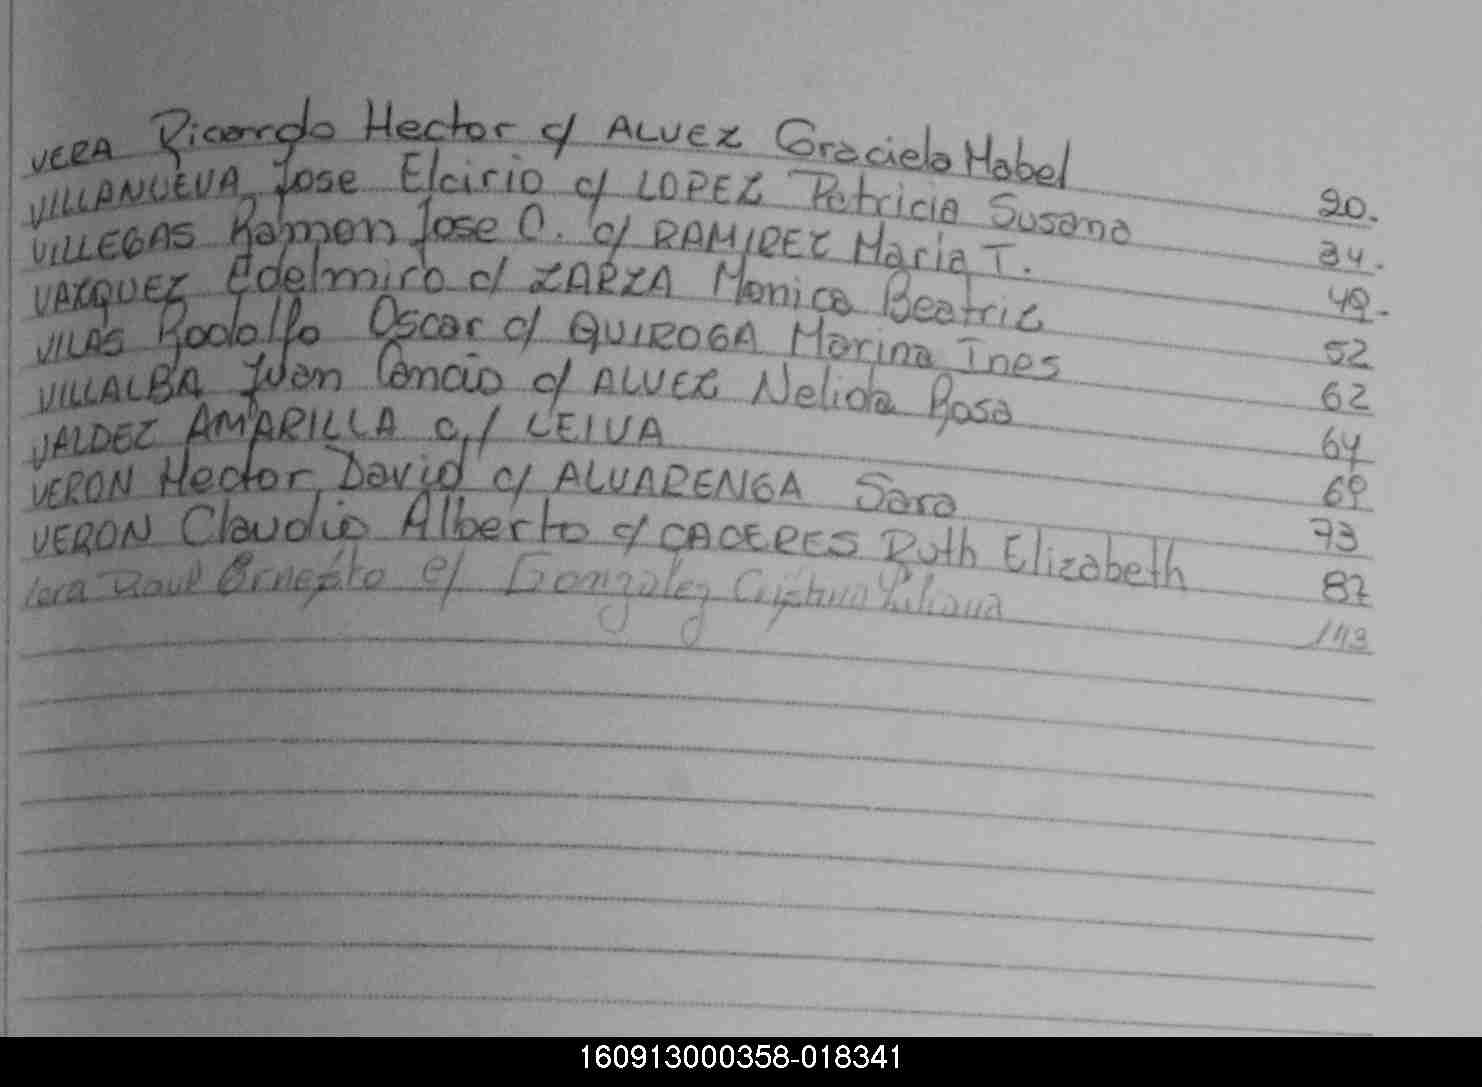 VERA Ricardo Hector c/ ALVEZ Graciela Mabel 20.
VILLANUEVA Jose Elcirio c/ LOPEZ Patricia Susana 34.
VILLEGAS Ramon Jose O. c/ RAMIREZ Maria T. 49.
VAZQUEZ Edelmiro c/ ZARZA Monica Beatriz 52
VILAS Rodolfo Oscar c/ QUIROGA Marina Ines 62
VILLALBA Juan Cancio c/ ALVEZ Nelida Rosa 64
VALDEZ AMARILLA c/ LEIVA 69
VERON Hector David c/ ALVARENGA Sara 73
VERON Claudio Alberto c/ CACERES Ruth Elizabeth 87
Raul Ernesto c/ Gonzalez Cristina Liliana 143
160913000358-018341